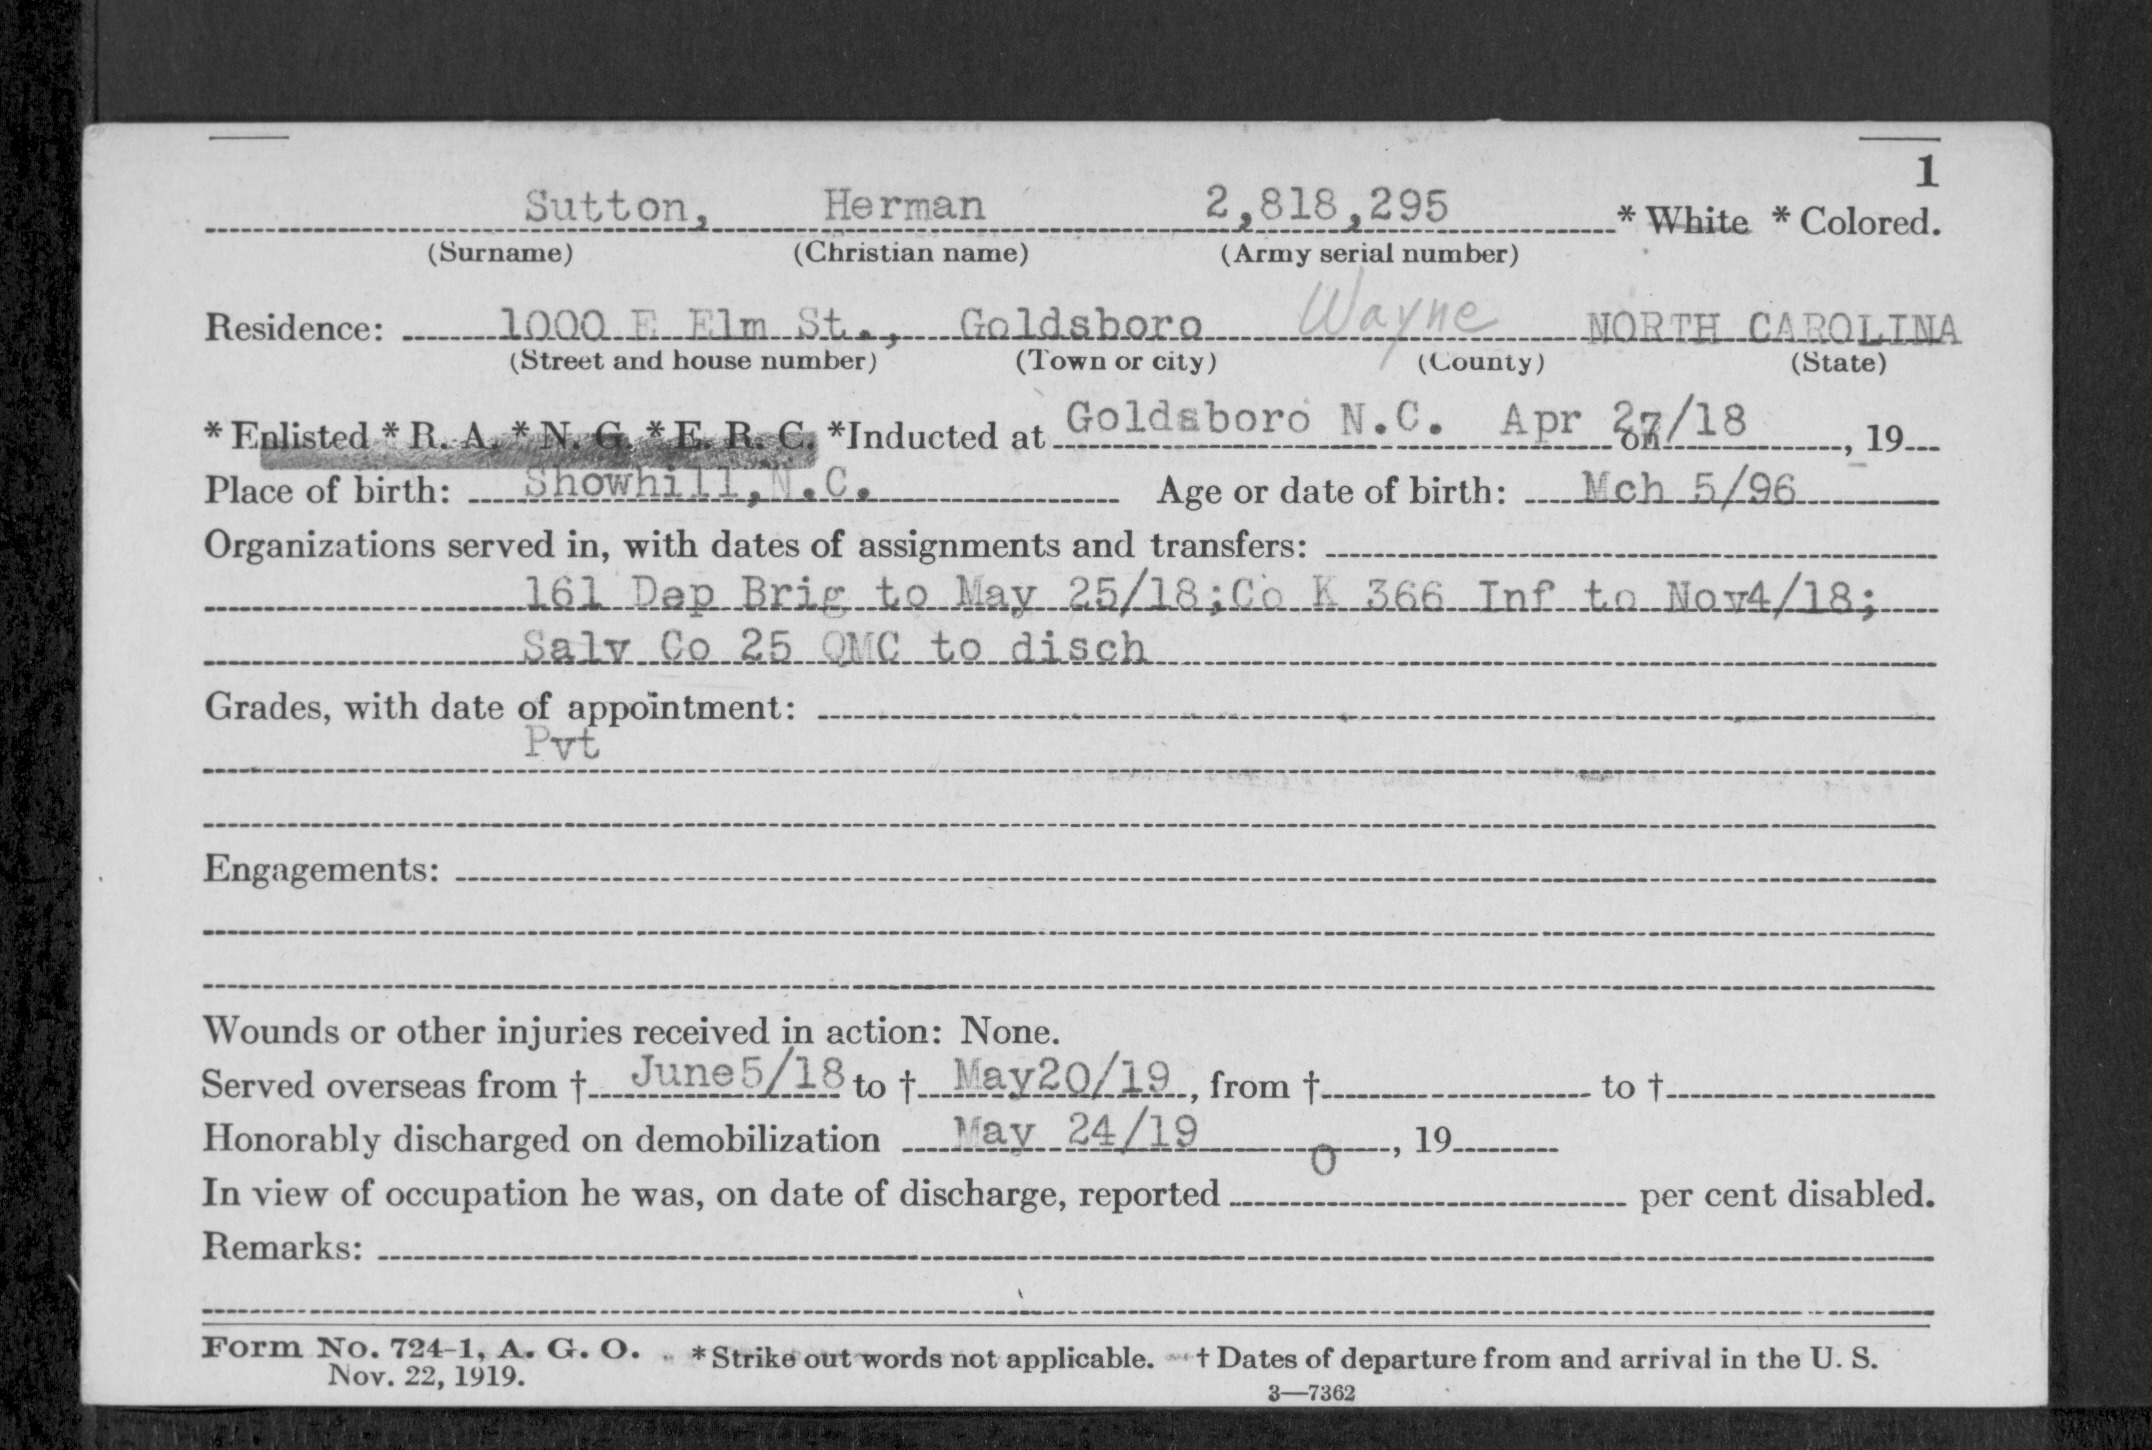 1
Sutton, Herman 2,818,295 * White * Colored.
(Surname) (Christian name) (Army serial number)
Residence: 1000 E Elm St., Goldsboro Wayne NORTH CAROLINA
(Street and house number) (Town or city) (County) (State)
* Enlisted * R. A. * N. G. * E. R. C. *Inducted at Goldsboro N.C. Apr 27/18 on , 19
Place of birth: Showhill, N.C. Age or date of birth: Mch 5/96
Organizations served in, with dates of assignments and transfers:
161 Dep Brig to May 25/18;Co K 366 Inf to Nov4/18;
Salv Co 25 QMC to disch
Grades, with date of appointment:
Pvt
Engagements:
Wounds or other injuries received in action: None.
Served overseas from † June5/18 to † May20/19, from † to †
Honorably discharged on demobilization May 24/19 , 19
In view of occupation he was, on date of discharge, reported 0 per cent disabled.
Remarks:
Form No. 724-1, A. G. O. * Strike out words not applicable. † Dates of departure from and arrival in the U. S.
Nov. 22, 1919.
3—7362